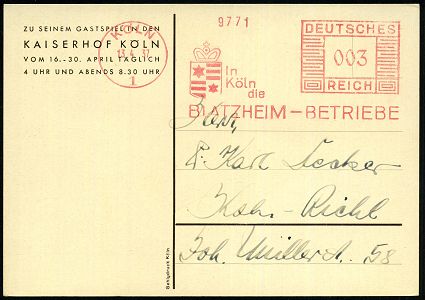 9771
ZU SEINEM GASTSPIEL IN DEN
KAISERHOF KÖLN
VOM 16.-30. APRIL TÄGLICH
4 UHR UND ABENDS 8.30 UHR
KÖLN
13.4.37
1
In
Köln
die
BLATZHEIM-BETRIEBE
DEUTSCHES
003
REICH
Karl
Köln-Riehl
Joh. Müllerstr. 58